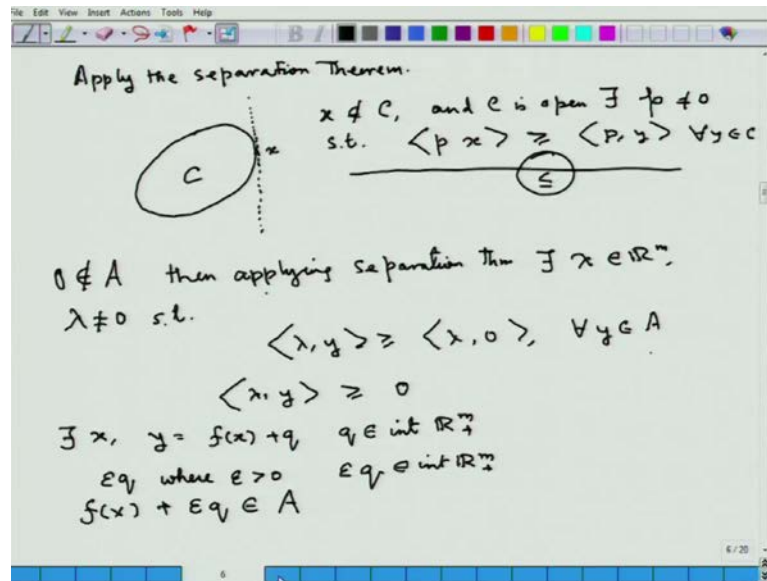 File Edit View Insert Actions Tools Help
Apply the separation Theorem.
x ∉ C, and C is open ∃ p ≠ 0
s.t. <p x> ≥ <p, y> ∀y∈C
x
C
≤
0 ∉ A then applying separation thm ∃ λ ∈ ℝᵐ,
λ ≠ 0 s.t.
<λ, y> ≥ <λ, 0>, ∀y∈A
<λ, y> ≥ 0
∃ x, y = f(x) + q q ∈ int ℝᵐ₊
εq where ε > 0 εq ∈ int ℝᵐ₊
f(x) + εq ∈ A
6/20
6